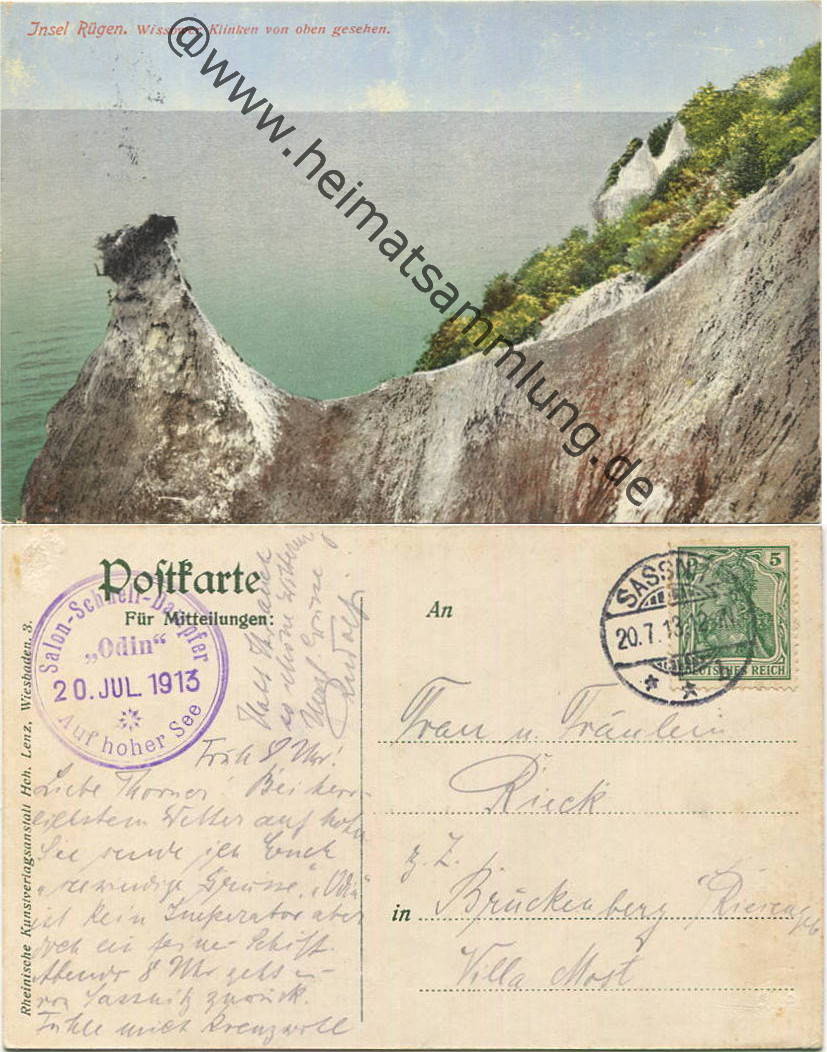 Insel Rügen. Wissower Klinken von oben gesehen.
@www.heimatsammlung.de
Postkarte
Für Mitteilungen:
Salon-Schnell-Dampfer
„Odin“
20. JUL 1913
Auf hoher See
Rheinische Kunstverlagsanstalt Hch. Lenz, Wiesbaden. 3.
Früh 8 Uhr!
Liebe Thorner! Bei herr-
lichstem Wetter auf hoher
See sende ich Euch
Grüsse. „Odin“
ist kein Imperator aber
doch ein feines Schiff.
Abends 8 Uhr gehts
von Sassnitz zurück.
Fühle mich kreuzwohl
so schöne
Rudolf.
An
SASSN
20.7.13
5
DEUTSCHES REICH
Frau u. Fräulein
Rieck
z. Z.
in Brückenberg Riesengeb
Villa Most